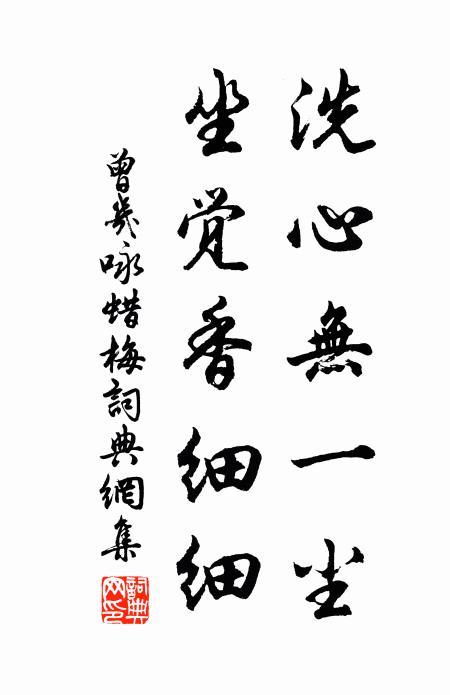 洗心無一尘
坐覚香细细
曾㡬咏蜡梅詞典網集
詞典网印